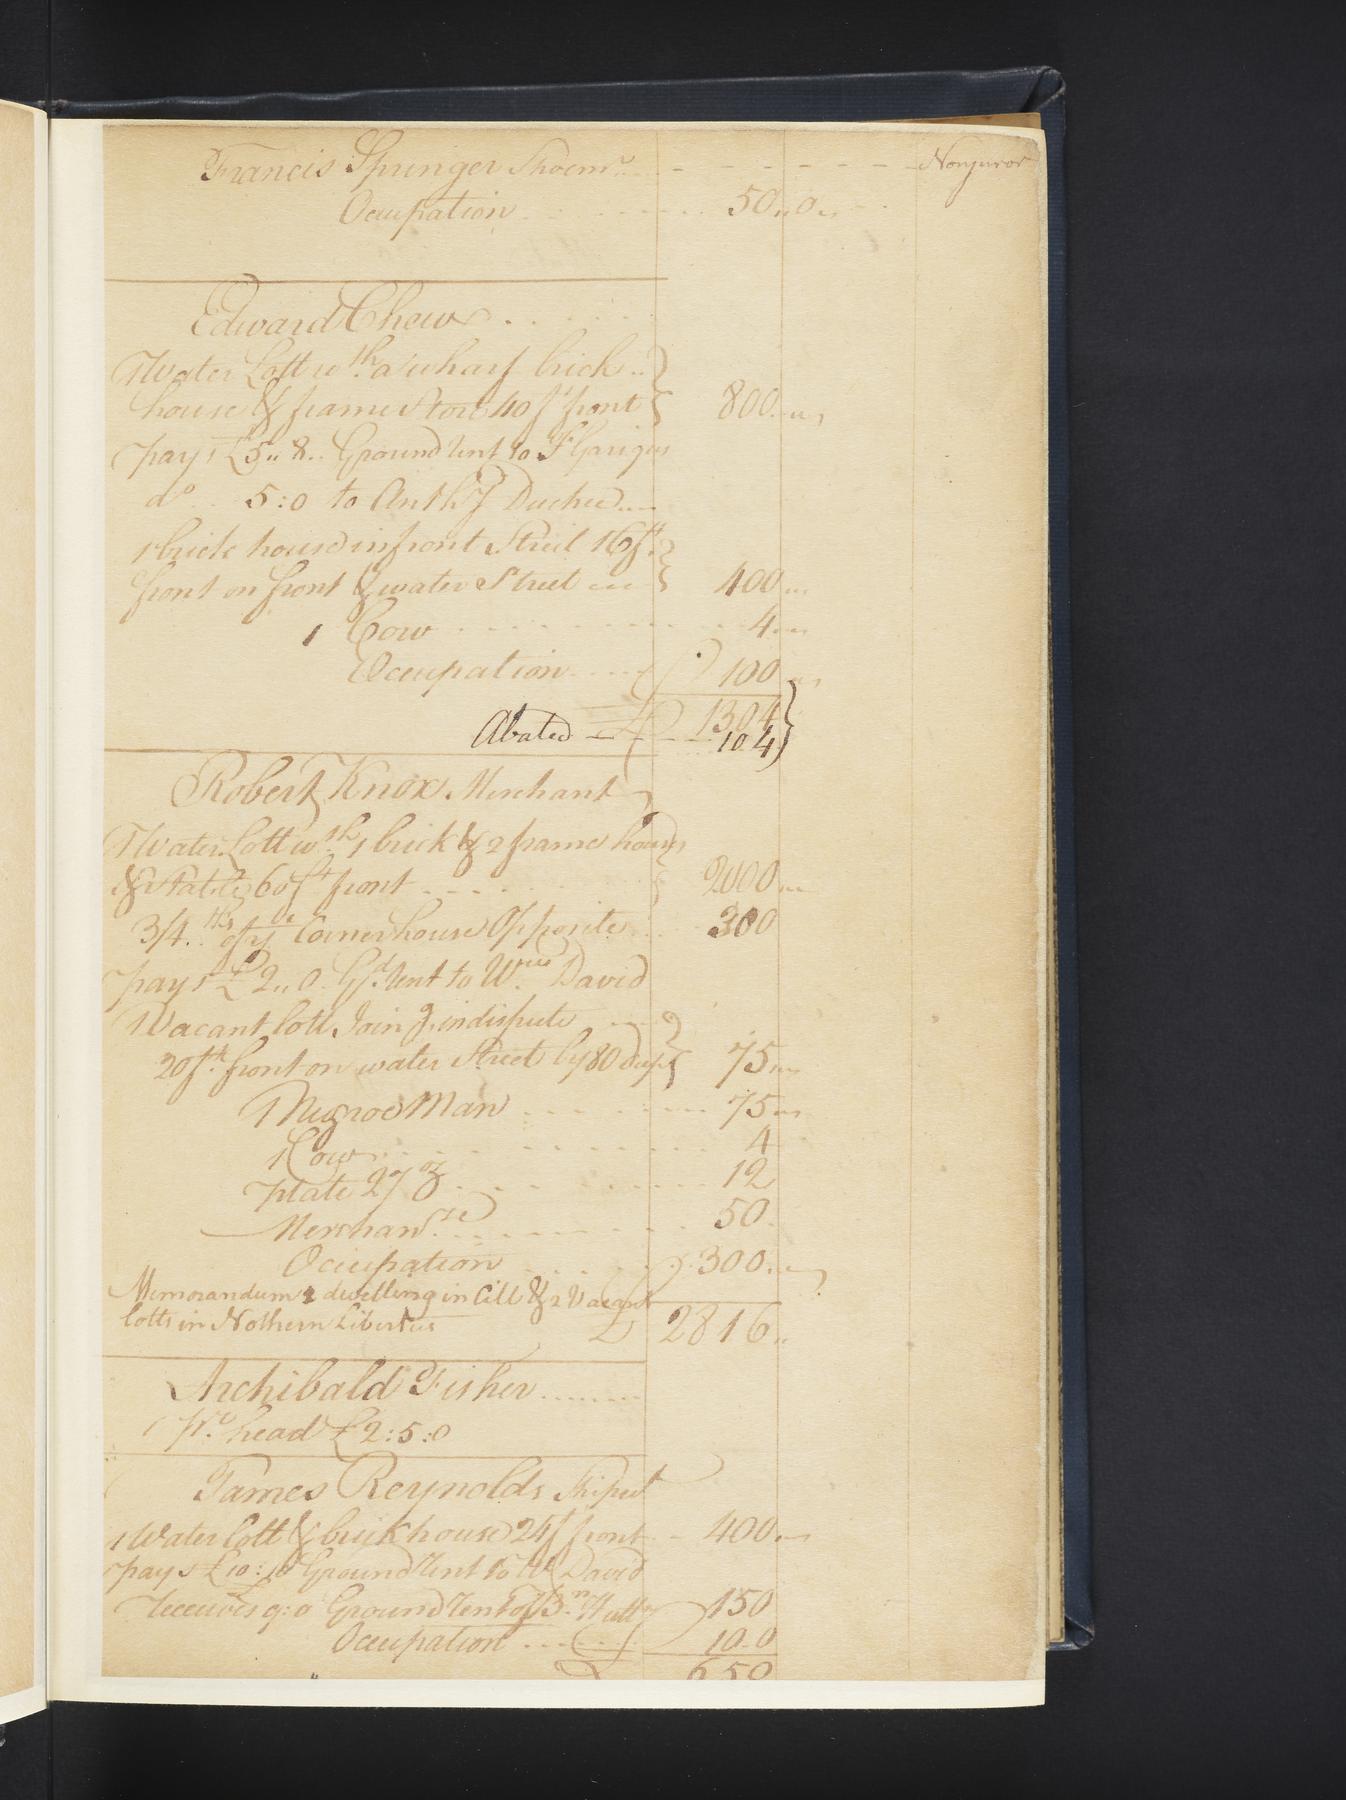 Francis Springer Shoemr. - - - - - - Nonjuror
Occupation 50,,0,,
Edward Chew
1 Water Lott wth. a wharf brick
house & frame Store 40 ft. front 800
pays £5,,8.. Ground Rent to
do 5:0 to Anthy Duchee
1 brick house in front Street 16 ft.
front on front & water Street 400
1 Cow 4
Occupation 100
£ 1304
Abated 104
Robert Knox Merchant
1 Water Lott wth. 1 brick & 2 frame houses
& Stable 60 ft front 2000
3/4.ths of ye Corner house Opposite 300
pays £2,,0 Gd. Rent to Wm. David
1 Vacant lott Joing. in dispute
20 ft. front on water Street by 80 deep 75
1 Negroe Man 75
1 Cow 4
plate 27 oz 12
Merchandze 50
Occupation 300
Memorandum 1 dwelling in Citt & 2 Vacant
lotts in Nothern Liberties
£ 2816
Archibald Fisher
pr. head £2:5:0
James Reynolds Shipwt
1 Water lott & brick house 24 ft front 400
pays £10:10 Ground Rent to W David
receives 9:0 Ground Rent of Bn. Hutt 150
Occupation 100
£ 650